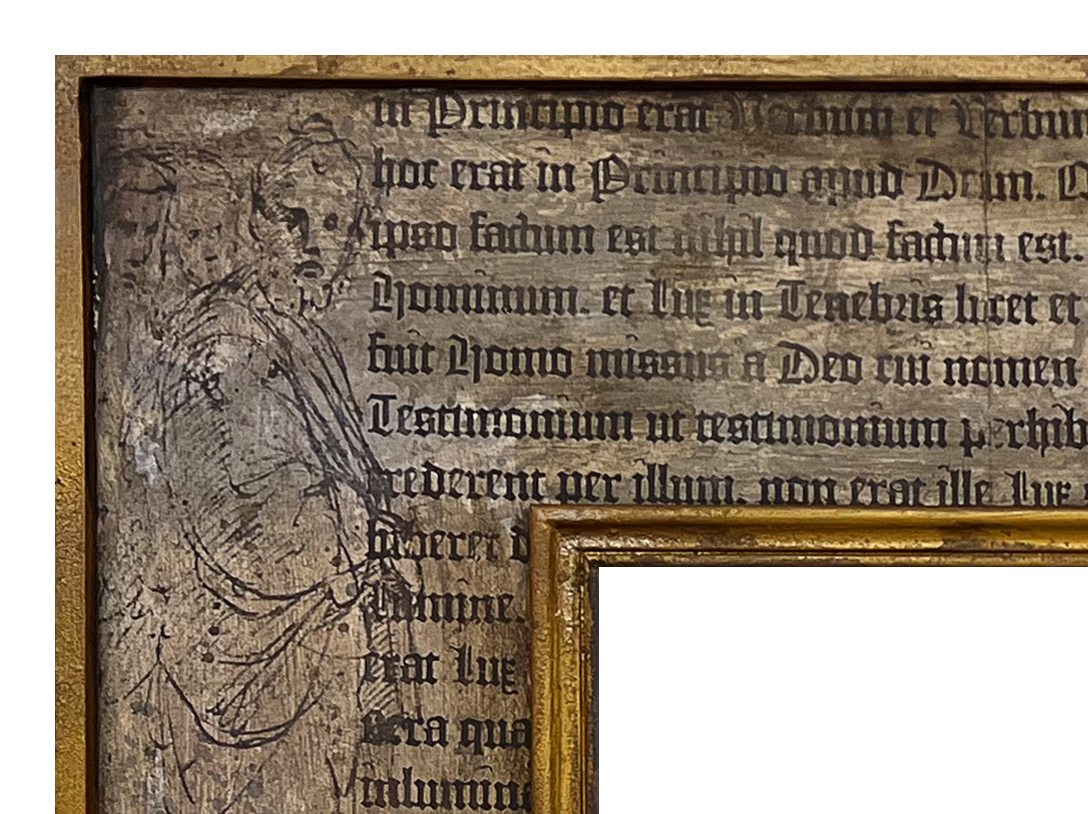 in Principio erat Verbum et Verbum
hoc erat in Principio apud Deum.
ipso factum est nihil quod factum est.
Hominum. et Lux in Tenebris lucet et
fuit Homo missus a Deo cui nomen
Testimonium ut testimonium perhib
crederent per illum. non erat ille Lux
hiberet
Lumine.
erat Lux
vera qua
inlumina